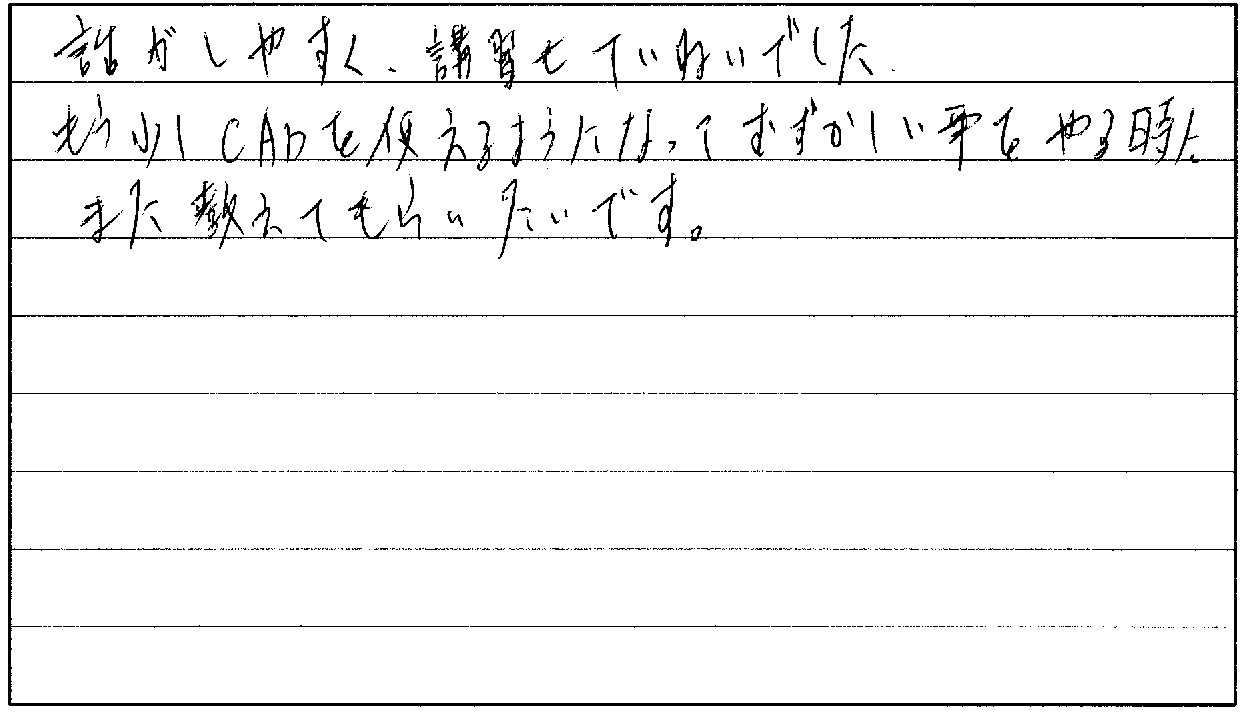 話がしやすく、講習もていねいでした.
もう少しCADを使えるようになってむずかしい事をやる時に
また教えてもらいたいです。